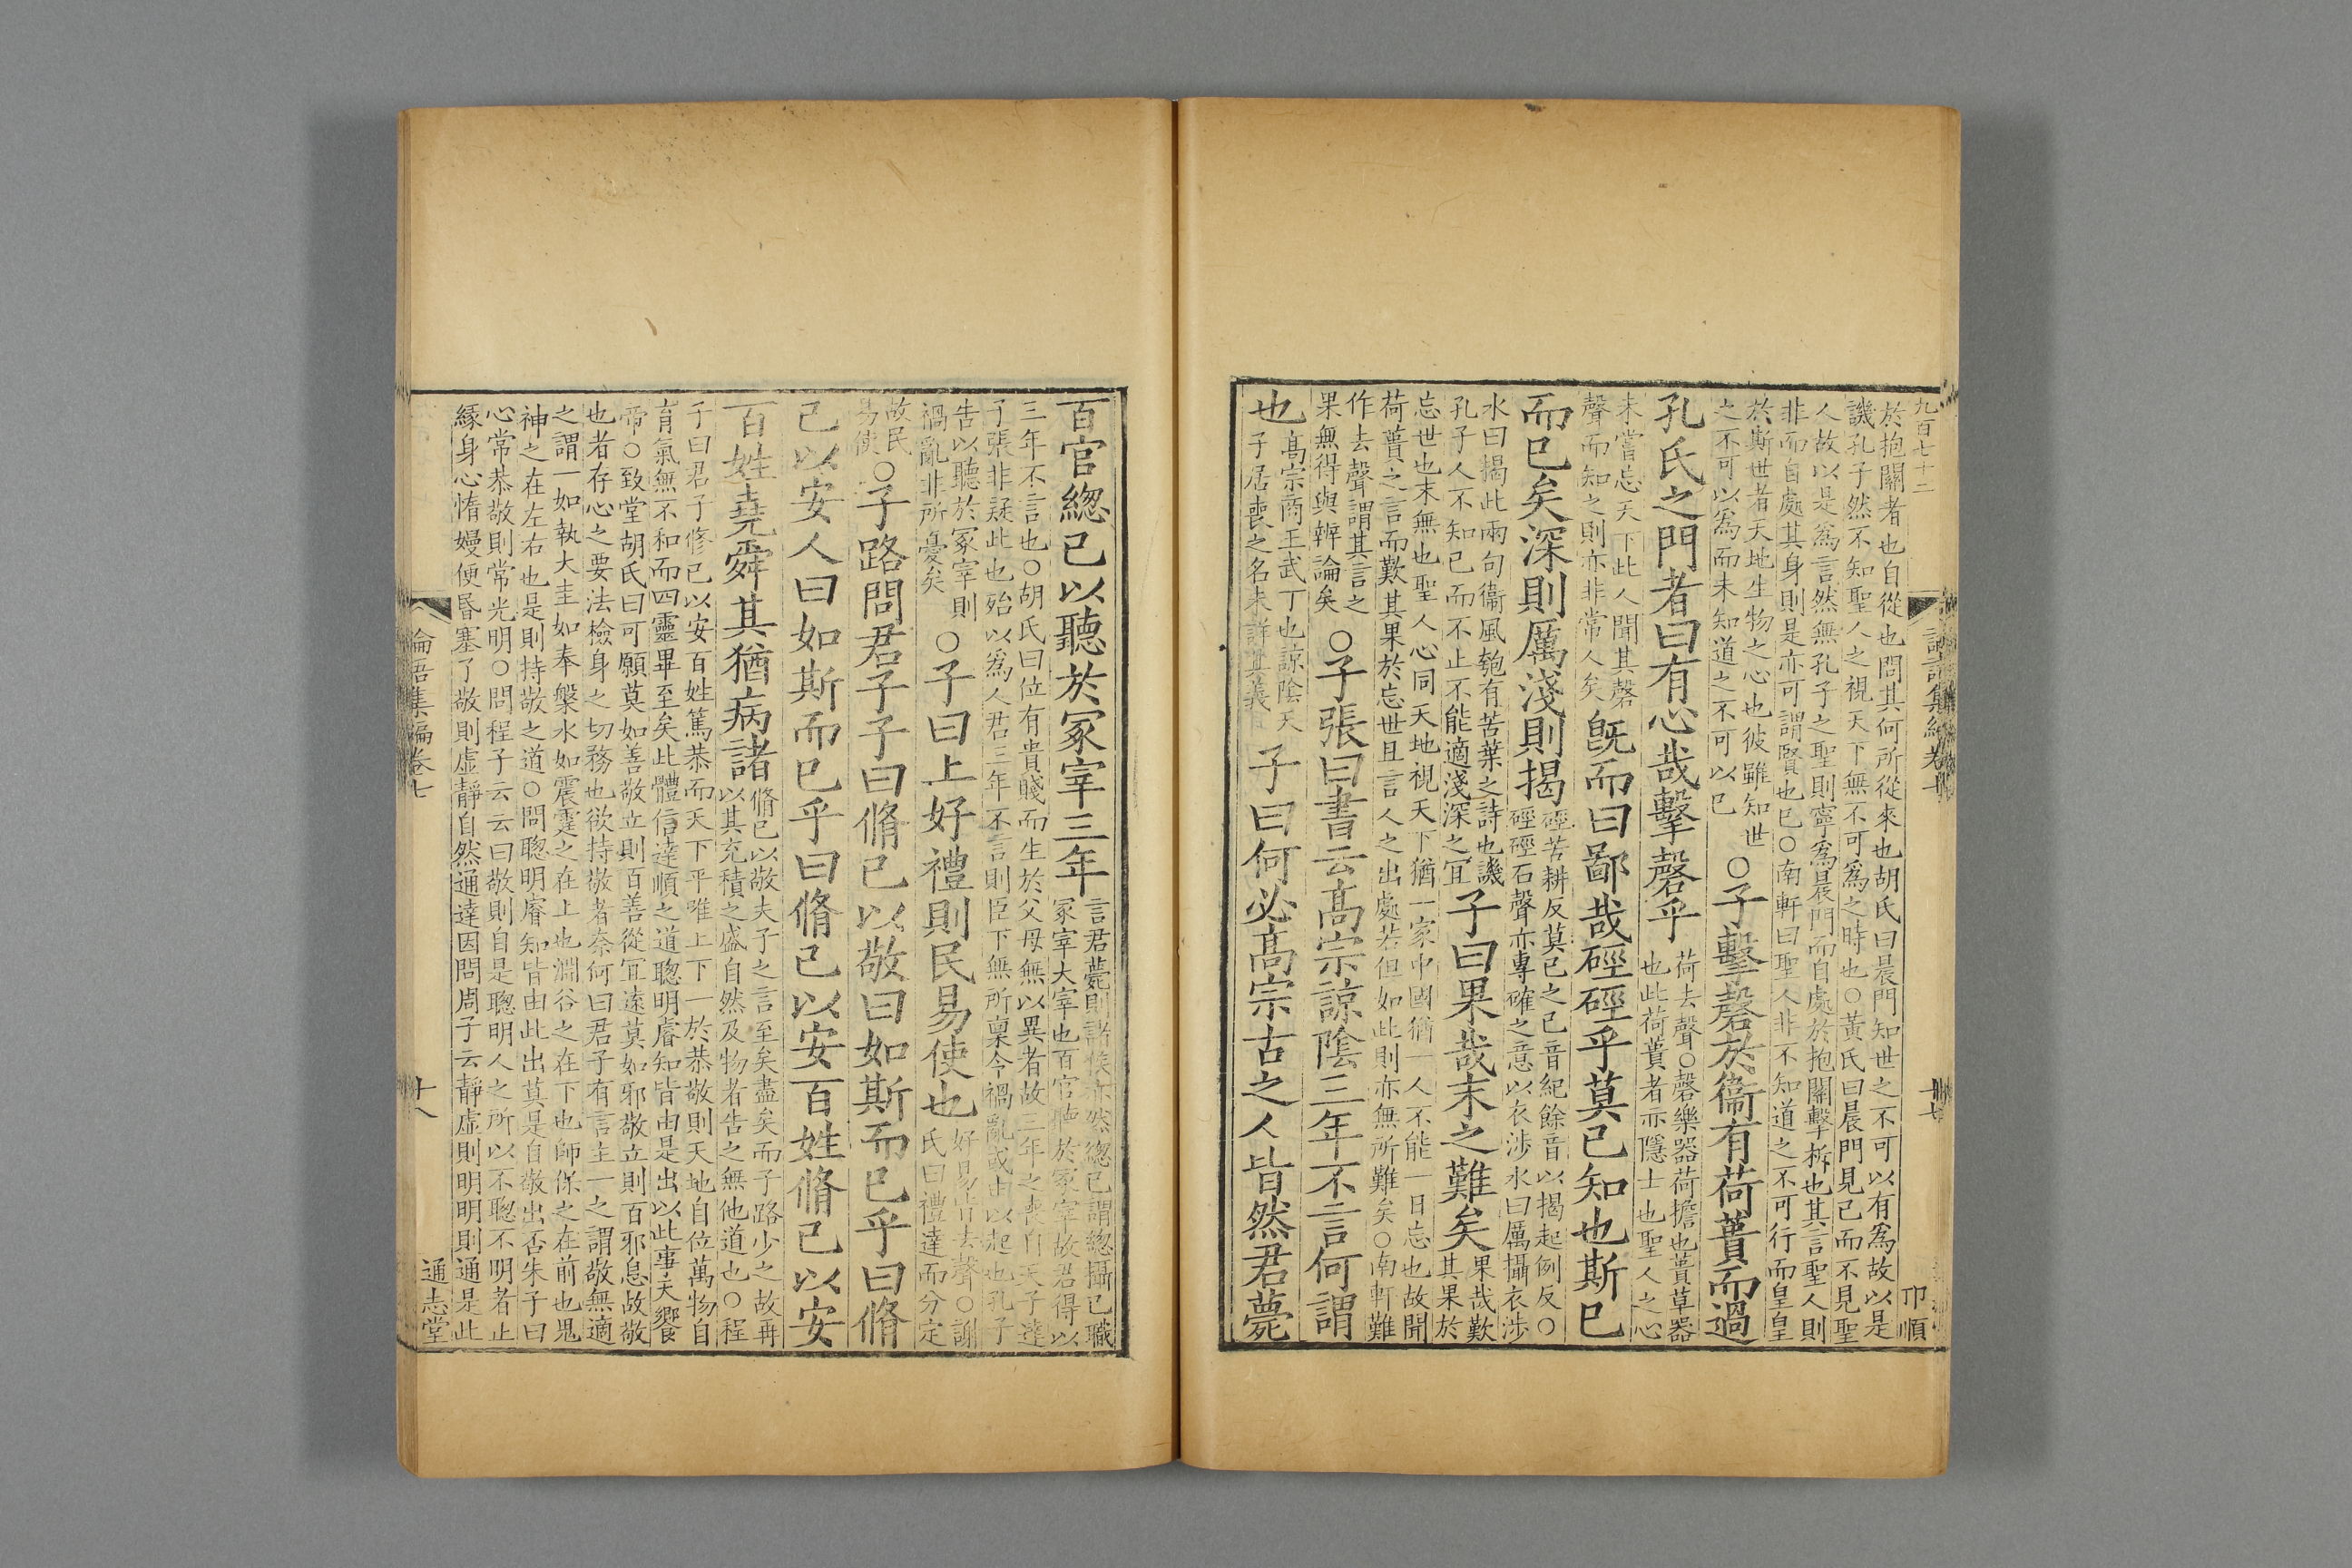 九百七十二
於抱關者也自從也問其何所從來也胡氏曰晨門知世之不可以有爲故以是
譏孔子然不知聖人之視天下無不可爲之時也○黃氏曰晨門見已而不見聖
人故以是爲言然無孔子之聖則寧爲晨門而自處於抱關擊柝也其言聖人則
非而自處其身則是亦可謂賢也巳○南軒曰聖人非不知道之不可行而皇皇
於斯世者天地生物之心也彼雖知世
之不可以爲而未知道之不可以已
○子擊磬於衞有荷蕢而過
孔氏之門者曰有心哉擊磬乎
荷去聲○磬樂器荷擔也蕢草器
也此荷蕢者亦隱士也聖人之心
未嘗忘天下此人聞其磬
聲而知之則亦非常人矣
旣而曰鄙哉硜硜乎莫已知也斯已
而已矣深則厲淺則揭
硜苦耕反莫已之已音紀餘音以揭起例反○
硜硜石聲亦專確之意以衣涉水曰厲攝衣涉
水曰揭此兩句衞風匏有苦葉之詩也譏
孔子人不知已而不止不能適淺深之宜
子曰果哉末之難矣
果哉歎
其果於
忘世也末無也聖人心同天地視天下猶一家中國猶一人不能一日忘也故聞
荷蕢之言而歎其果於忘世且言人之出處若但如此則亦無所難矣○南軒難
作去聲謂其言之
果無得與辨論矣
○子張曰書云高宗諒陰三年不言何謂
也
高宗商王武丁也諒陰天
子居喪之名未詳其義
子曰何必高宗古之人皆然君薨
卭順
百官緫已以聽於冢宰三年
言君薨則諸侯亦然緫已謂緫攝已職
冢宰大宰也百官聽於冢宰故君得以
三年不言也○胡氏曰位有貴賤而生於父母無以異者故三年之喪自天子達
子張非疑此也殆以爲人君三年不言則臣下無所稟令禍亂或由以起也孔子
告以聽於冢宰則
禍亂非所憂矣
○子曰上好禮則民易使也
好易皆去聲○謝
氏曰禮達而分定
故民
易使
○子路問君子子曰脩已以敬曰如斯而已乎曰脩
已以安人曰如斯而已乎曰脩已以安百姓脩已以安
百姓堯舜其猶病諸
脩已以敬夫子之言至矣盡矣而子路少之故再
以其充積之盛自然及物者告之無他道也○程
子曰君子修已以安百姓篤恭而天下平唯上下一於恭敬則天地自位萬物自
育氣無不和而四靈畢至矣此體信達順之道聰明睿知皆由是出以此事天饗
帝○致堂胡氏曰可願莫如善敬立則百善從冝遠莫如邪敬立則百邪息故敬
也者存心之要法檢身之切務也欲持敬者柰何曰君子有言主一之謂敬無適
之謂一如執大圭如奉槃水如震霆之在上也淵谷之在下也師保之在前也鬼
神之在左右也是則持敬之道○問聰明睿知皆由此出莫是自敬出否朱子曰
心常恭敬則常光明○問程子云云曰敬則自是聰明人之所以不聰不明者止
緣身心惰嫚便昬塞了敬則虛靜自然通達因問周子云靜虛則明明則通是此
論語集編卷七
十八
通志堂